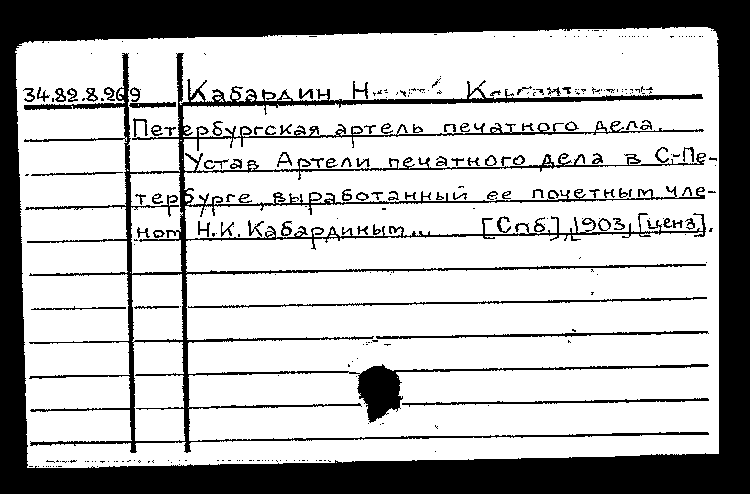 34.82.8.269 Кабардин, Н
Петербургская артель печатного дела.
Устав Артели печатного дела в С-Пе-
тербурге, выработанный ее почетным чле-
ном Н.К.Кабардиным... [Спб.], 1903, [ценз].